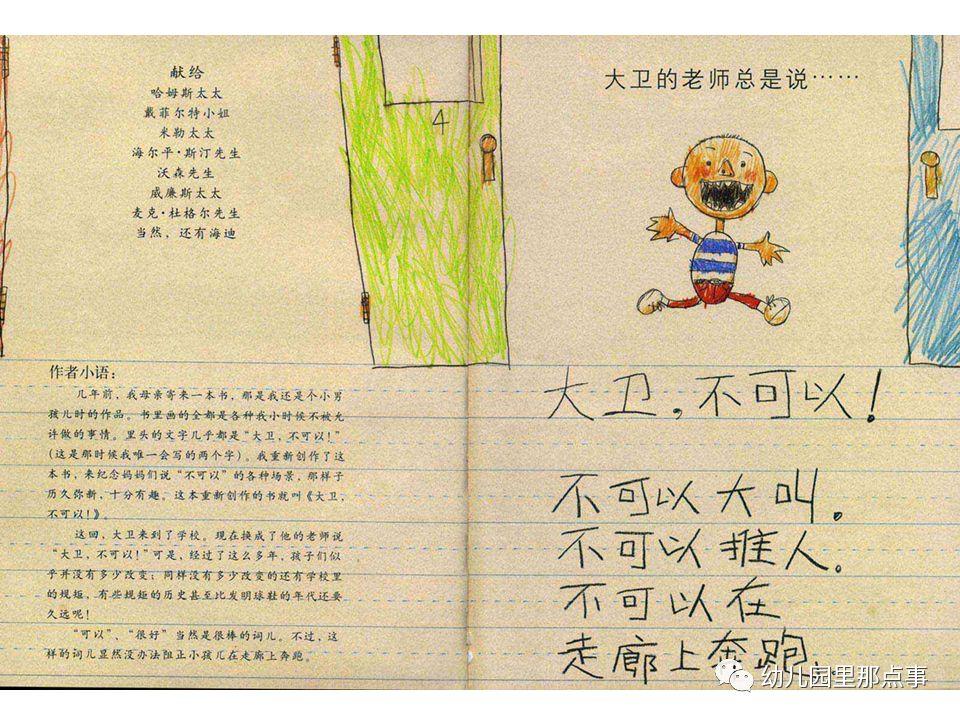 献给
哈姆斯太太
戴菲尔特小姐
米勒太太
海尔平·斯汀先生
沃森先生
威廉斯太太
麦克·杜格尔先生
当然，还有海迪
4
作者小语：
几年前，我母亲寄来一本书，那是我还是个小男
孩儿时的作品。书里画的全都是各种我小时候不被允
许做的事情。里头的文字几乎都是“大卫，不可以！”
（这是那时候我唯一会写的两个字）。我重新创作了这
本书，来纪念妈妈们说“不可以”的各种场景，那样子
历久弥新，十分有趣。这本重新创作的书就叫《大卫，
不可以！》。
这回，大卫来到了学校。现在换成了他的老师说
“大卫，不可以！”可是，经过了这么多年，孩子们似
乎并没有多少改变；同样没有多少改变的还有学校里
的规矩，有些规矩的历史甚至比发明球鞋的年代还要
久远呢！
“可以”、“很好”当然是很棒的词儿。不过，这
样的词儿显然没办法阻止小孩儿在走廊上奔跑。
大卫的老师总是说……
大卫，不可以！
不可以大叫。
不可以推人。
不可以在
走廊上奔跑。
幼儿园里那点事